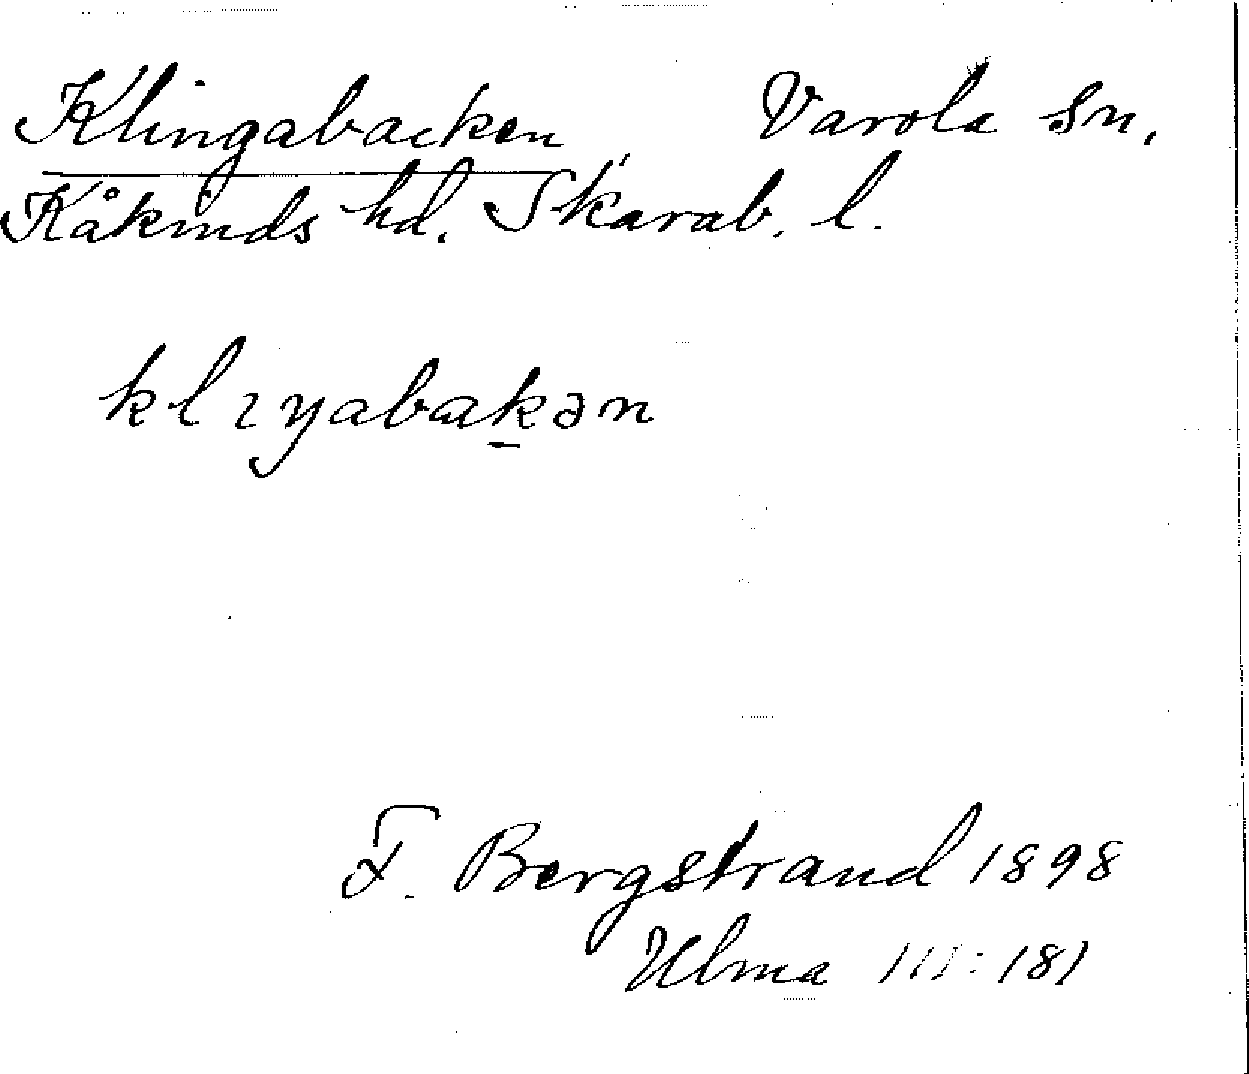 Klingabacken, Varola sn,
Kåkinds hd. Skarab. l.
klıŋabakən
F. Bergstrand 1898
Ulma III:181